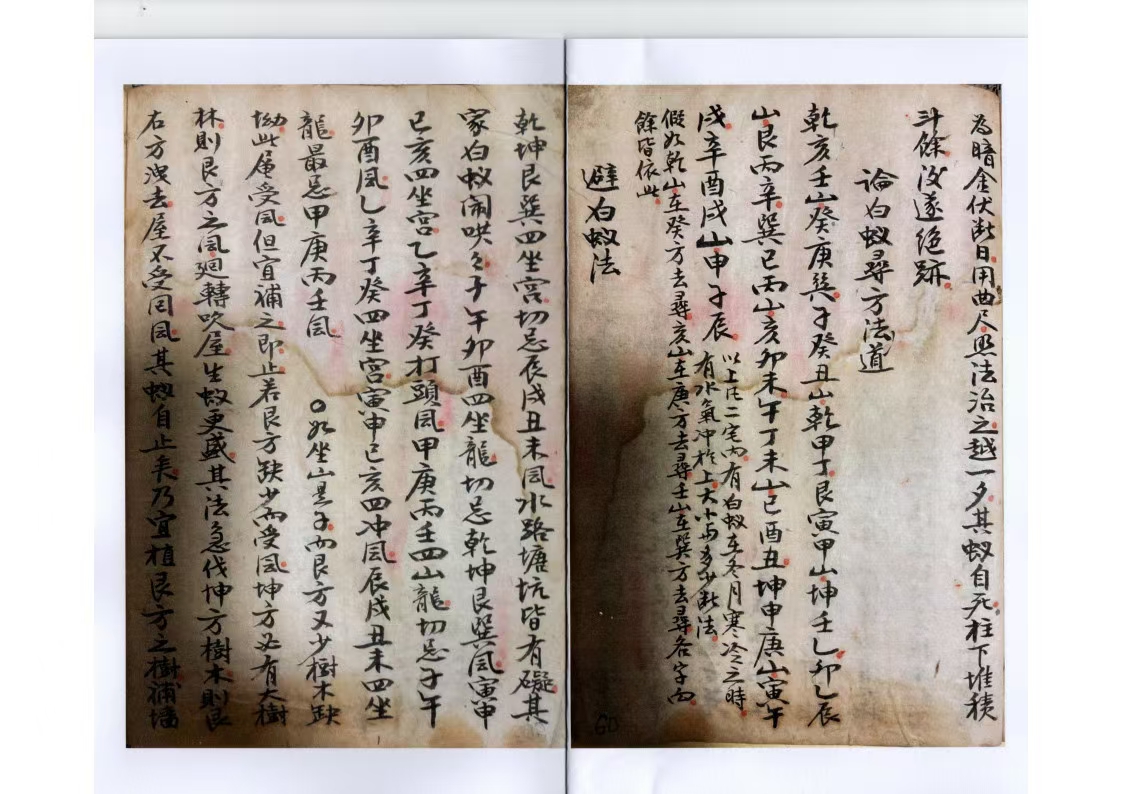 為暗金伏断日用曲尺照法治之越一夕其蚁自死柱下堆積
斗餘後遂绝跡
論白蚁尋方法道
乾亥壬山癸庚巽子癸丑山乾甲丁艮寅甲山坤壬乙卯乙辰
山艮丙辛巽巳丙山亥卯未午丁未山巳酉丑坤申庚山寅午
戌辛酉戌山申子辰
以上凡二宅内有白蚁在冬月寒冷之時
有水氣冲於上大小与多少断法
假如乾山在癸方去尋亥山在庚方去尋壬山在巽方去尋各字内
餘皆依此
避白蚁法
乾坤艮巽四坐宫切忌辰戌丑未風水路塘坑皆有礙其
家白蚁闹哄々子午卯酉四坐龍切忌乾坤艮巽風寅申
巳亥四坐宫乙辛丁癸打頭風甲庚丙壬四山龍切忌子午
卯酉風乙辛丁癸四坐宫寅申巳亥四冲風辰戌丑未四坐
龍最忌甲庚丙壬風
○如坐山是子而艮方又少樹木缺
坳此屋受風但宜補之即止若艮方缺少而受風坤方必有大樹
林則艮方之風廻轉吹屋生蚁更盛其法急伐坤方樹木則艮
右方洩去屋不受囘風其蚁自止矣乃宜植艮方之樹補墻